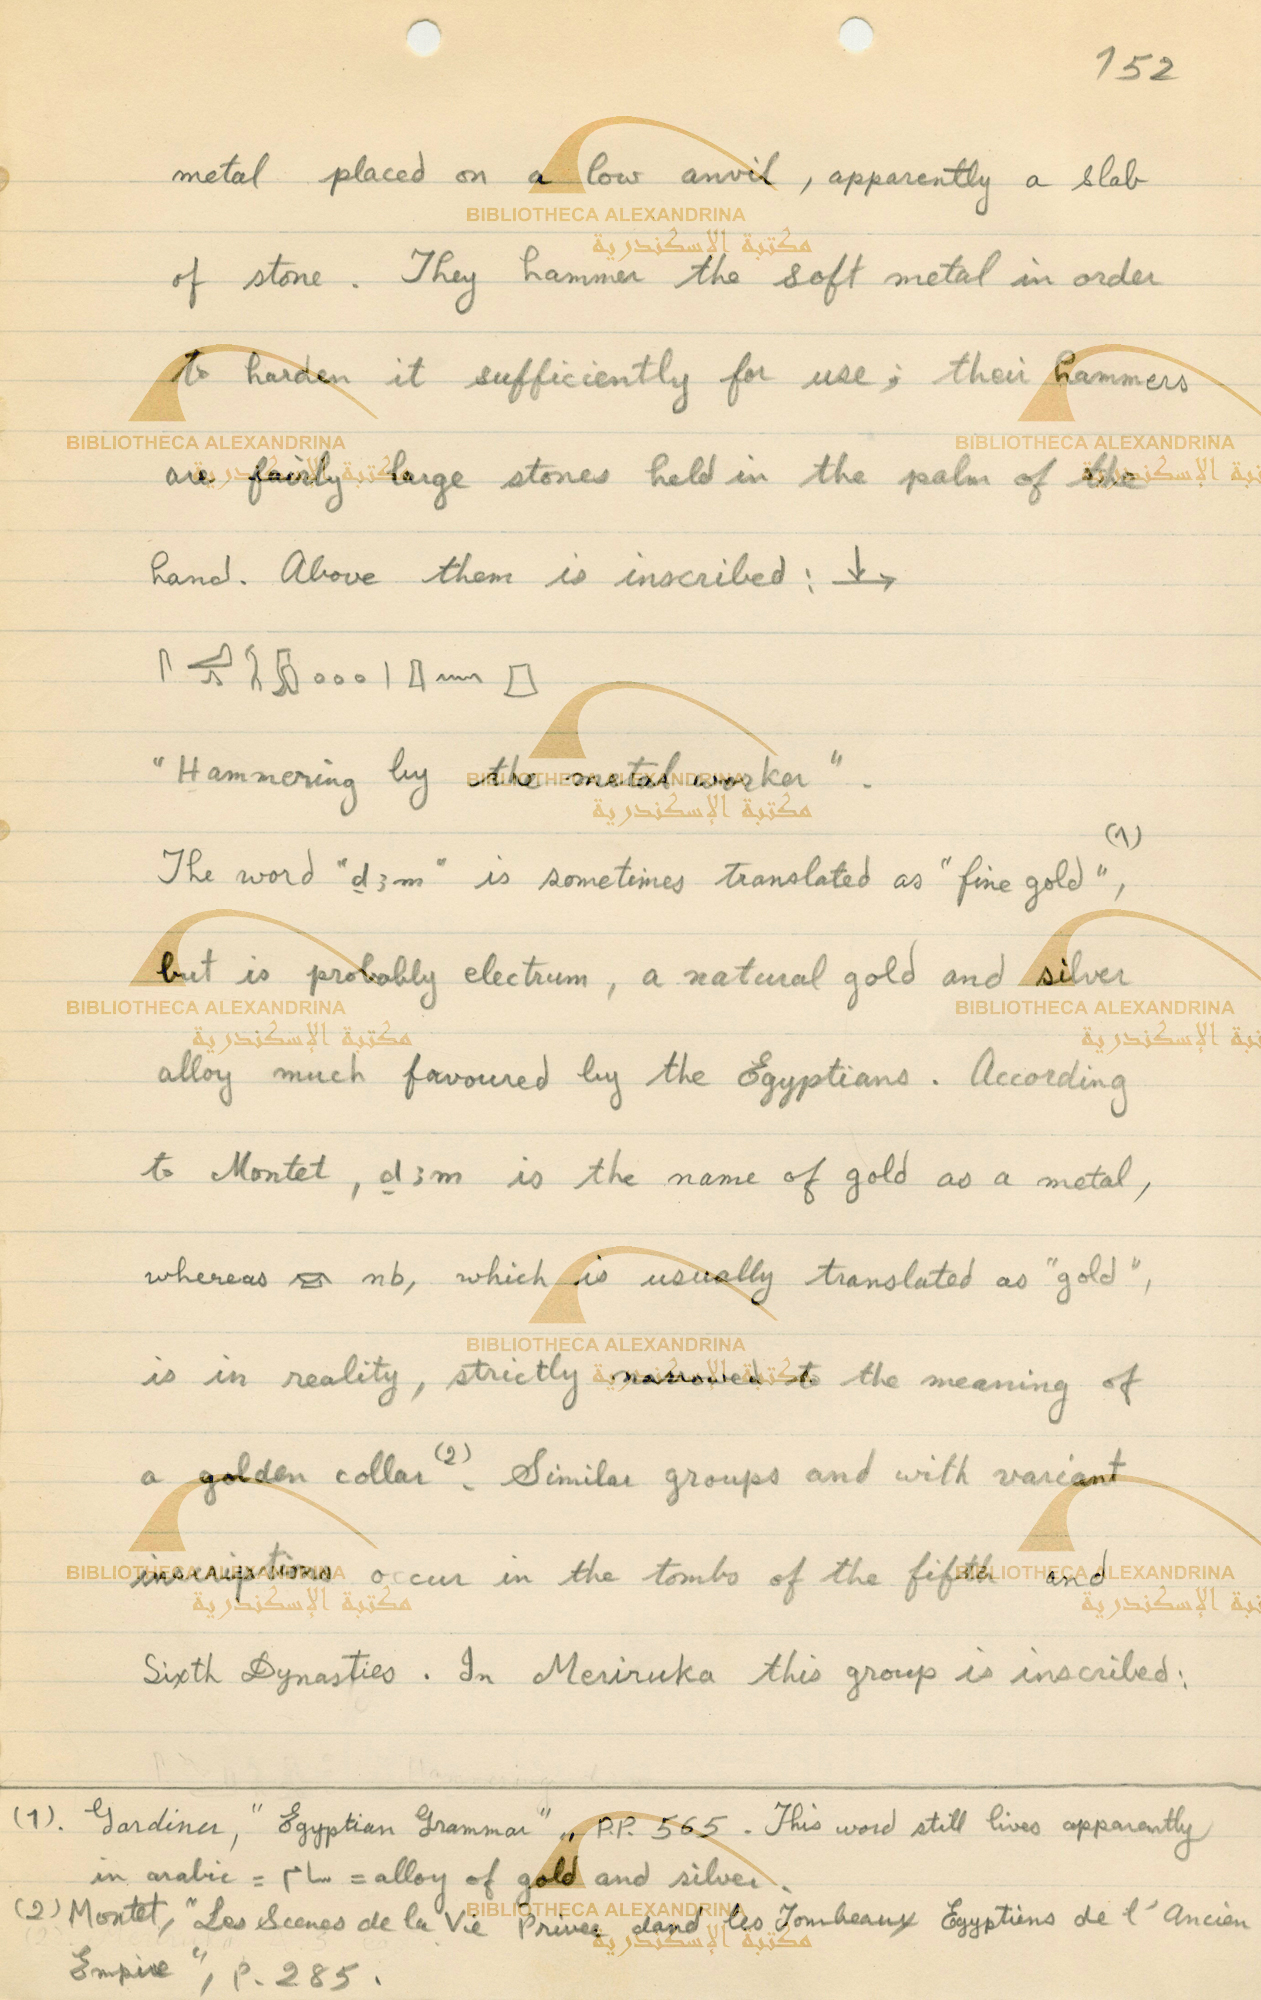 152
metal placed on a low anvil, apparently a slab
of stone. They hammer the soft metal in order
to harden it sufficiently for use; their hammers
are fairly large stones held in the palm of the
hand. Above them is inscribed:
"Hammering by the metal worker".
The word "ḏꜣm" is sometimes translated as "fine gold"(1),
but is probably electrum, a natural gold and silver
alloy much favoured by the Egyptians. According
to Montet, ḏꜣm is the name of gold as a metal,
whereas nb, which is usually translated as "gold",
is in reality, strictly narrowed to the meaning of
a golden collar(2). Similar groups and with variant
inscriptions occur in the tombs of the fifth and
Sixth Dynasties. In Meriruka this group is inscribed:
(1). Gardiner, "Egyptian Grammar", P.P. 565. This word still lives apparently
in arabic = = alloy of gold and silver.
(2) Montet, "Les Scenes de la Vie Privee dand les Tombeaux Egyptiens de l'Ancien
Empire", P. 285.
BIBLIOTHECA ALEXANDRINA
مكتبة الإسكندرية